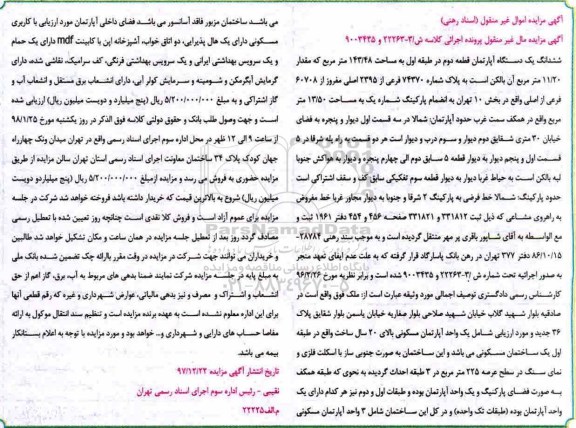 آگهی مزایده اموال غیر منقول (اسناد رهنی)
آگهی مزایده مال غیر منقول پرونده اجرائی کلاسه ش/۳-۲۲۲۶۳ و ۹۰۰۳۴۳۵
ششدانگ یک دستگاه آپارتمان قطعه دوم در طبقه اول به مساحت ۱۴۳/۴۸ متر مربع که مقدار
۱۱/۲۰ متر مربع آن بالکن است به پلاک شماره ۷۴۳۷۰ فرعی از ۲۳۹۵ اصلی مفروز از ۶۰۷۰۸
فرعی از اصلی واقع در بخش ۱۰ تهران به انضمام پارکینگ شماره یک به مساحت ۱۳/۵۰ متر
مربع واقع در همکف سمت غرب حدود آپارتمان: شمالا در سه قسمت اول دیوار و پنجره به فضای
خیابان ۳۰ متری شقایق دوم دیوار و سوم درب و دیوار است هر دو قسمت به راه پله شرقا در ۵
قسمت اول و پنجم دیوار به دیوار قطعه ۵ سابق دوم الی چهارم پنجره و دیوار به هواکش جنوبا
لبه بالکن است به حیاط غربا دیوار به دیوار قطعه سوم تفکیکی سابق کف و سقف اشتراکی است
حدود پارکینگ: شمالا خط فرضی به پارکینگ ۲ شرقا و جنوبا به دیوار مجاور غربا خط مفروض
به راهروی مشاعی که ذیل ثبت ۳۳۱۸۱۲ و ۳۳۱۸۲۱ صفحه ۴۵۶ و ۴۵۴ دفتر ۱۹۶۱ ثبت و
مع الواسطه به آقای شاپور باقری پر مهر منتقل گردیده است و به موجب سند رهنی ۲۸۷۸۴-
۸۶/۱۰/۱۵ دفتر ۳۷۷ تهران در رهن بانک پاسارگاد قرار گرفته که به علت عدم ایفای تعهد منجر
به صدور اجرائیه تحت شماره ش/۳-۲۲۲۶۳ و ۹۰۰۳۴۳۵ شده است و برابر نظریه مورخ ۹۶/۳/۲۶
کارشناس رسمی دادگستری توصیف اجمالی مورد وثیقه عبارت است از: ملک فوق واقع است در
صادقیه بلوار شهید گلاب خیابان شهید صلاحی بلوار صغاریه خیابان یاسمن بلوار شقایق پلاک
۳۶ جدید و مورد ارزیابی شامل یک واحد آپارتمان مسکونی بالای ۲۰ سال ساخت واقع در طبقه
اول یک ساختمان مسکونی می باشد و این ساختمان به صورت جنوبی ساز با اسکلت فلزی و
نمای سنگ در سطح عرصه ۲۲۵ متر مربع در ۳ طبقه احداث گردیده به نحوی که طبقه همکف
به صورت فضای پارکینگ و یک واحد آپارتمان بوده و طبقات اول و دوم نیز هر کدام دارای یک
واحد آپارتمان بوده (طبقات تک واحده) و در کل این ساختمان شامل ۳ واحد آپارتمان مسکونی
می باشد. ساختمان مزبور فاقد آسانسور می باشد. فضای داخلی آپارتمان مورد ارزیابی با کاربری
مسکونی دارای یک هال پذیرایی، دو اتاق خواب، آشپزخانه اپن با کابینت mdf دارای یک حمام
و یک سرویس بهداشتی ایرانی و یک سرویس بهداشتی فرنگی، کف سرامیک، نقاشی شده، دارای
گرمایش آبگرمکن و شومینه و سرمایش کولر آبی، دارای انشعاب برق مستقل و انشعاب آب و
گاز اشتراکی و به مبلغ ۵/۲۰۰/۰۰۰/۰۰۰ ریال (پنج میلیارد و دویست میلیون ریال) ارزیابی شده
است و جهت وصول طلب بانک و حقوق دولتی کلاسه فوق الذکر در روز یکشنبه مورخ ۹۸/۱/۲۵
از ساعت ۹ الی ۱۲ ظهر در محل اداره سوم اجرای اسناد رسمی واقع در تهران میدان ونک چهارراه
جهان کودک پلاک ۳۴ ساختمان معاونت اجرای اسناد رسمی استان تهران سالن مزایده از طریق
مزایده حضوری به فروش می رسد و مزایده ازمبلغ ۵/۲۰۰/۰۰۰/۰۰۰ ریال (پنج میلیاردو دویست
میلیون ریال) شروع به بالاترین قیمت که خریدار داشته باشد فروخته خواهد شد شرکت در جلسه
مزایده برای عموم آزاد است و فروش کلا نقدی است چنانچه روز تعیین شده با تعطیل رسمی
مصادف گردد روز بعد از تعطیل جلسه مزایده در همان ساعت و مکان تشکیل خواهد شد طالبین
و خریداران می توانند جهت شرکت در مزایده در وقت مقرر باارائه چک تضمین شده بانک ملی
به مبلغ پایه در جلسه مزایده شرکت نمایند ضمنا بدهی های مربوط به آب، برق، گاز اعم از حق
انشعاب و اشتراک و مصرف و نیز بدهی مالیاتی، عوارض شهرداری و غیره که رقم قطعی آنها
برای این اداره معلوم نشده است به عهده برنده مزایده است و تنظیم سند انتقال موکول به ارائه
مفاصا حساب های دارایی و شهرداری و... خواهد بود و مورد مزایده با توجه به اعلام بستانکار
بیمه می باشد.
تاریخ انتشار آگهی مزایده ۹۷/۱۲/۲۲
نقیبی - رئیس اداره سوم اجرای اسناد رسمی تهران
م.الف/۲۲۲۲۵
ParsNamadData
پایگاه اطلاع رسانی مناقصه و مزایده
۰۲۱-۸۸۳۴۹۶۷۰